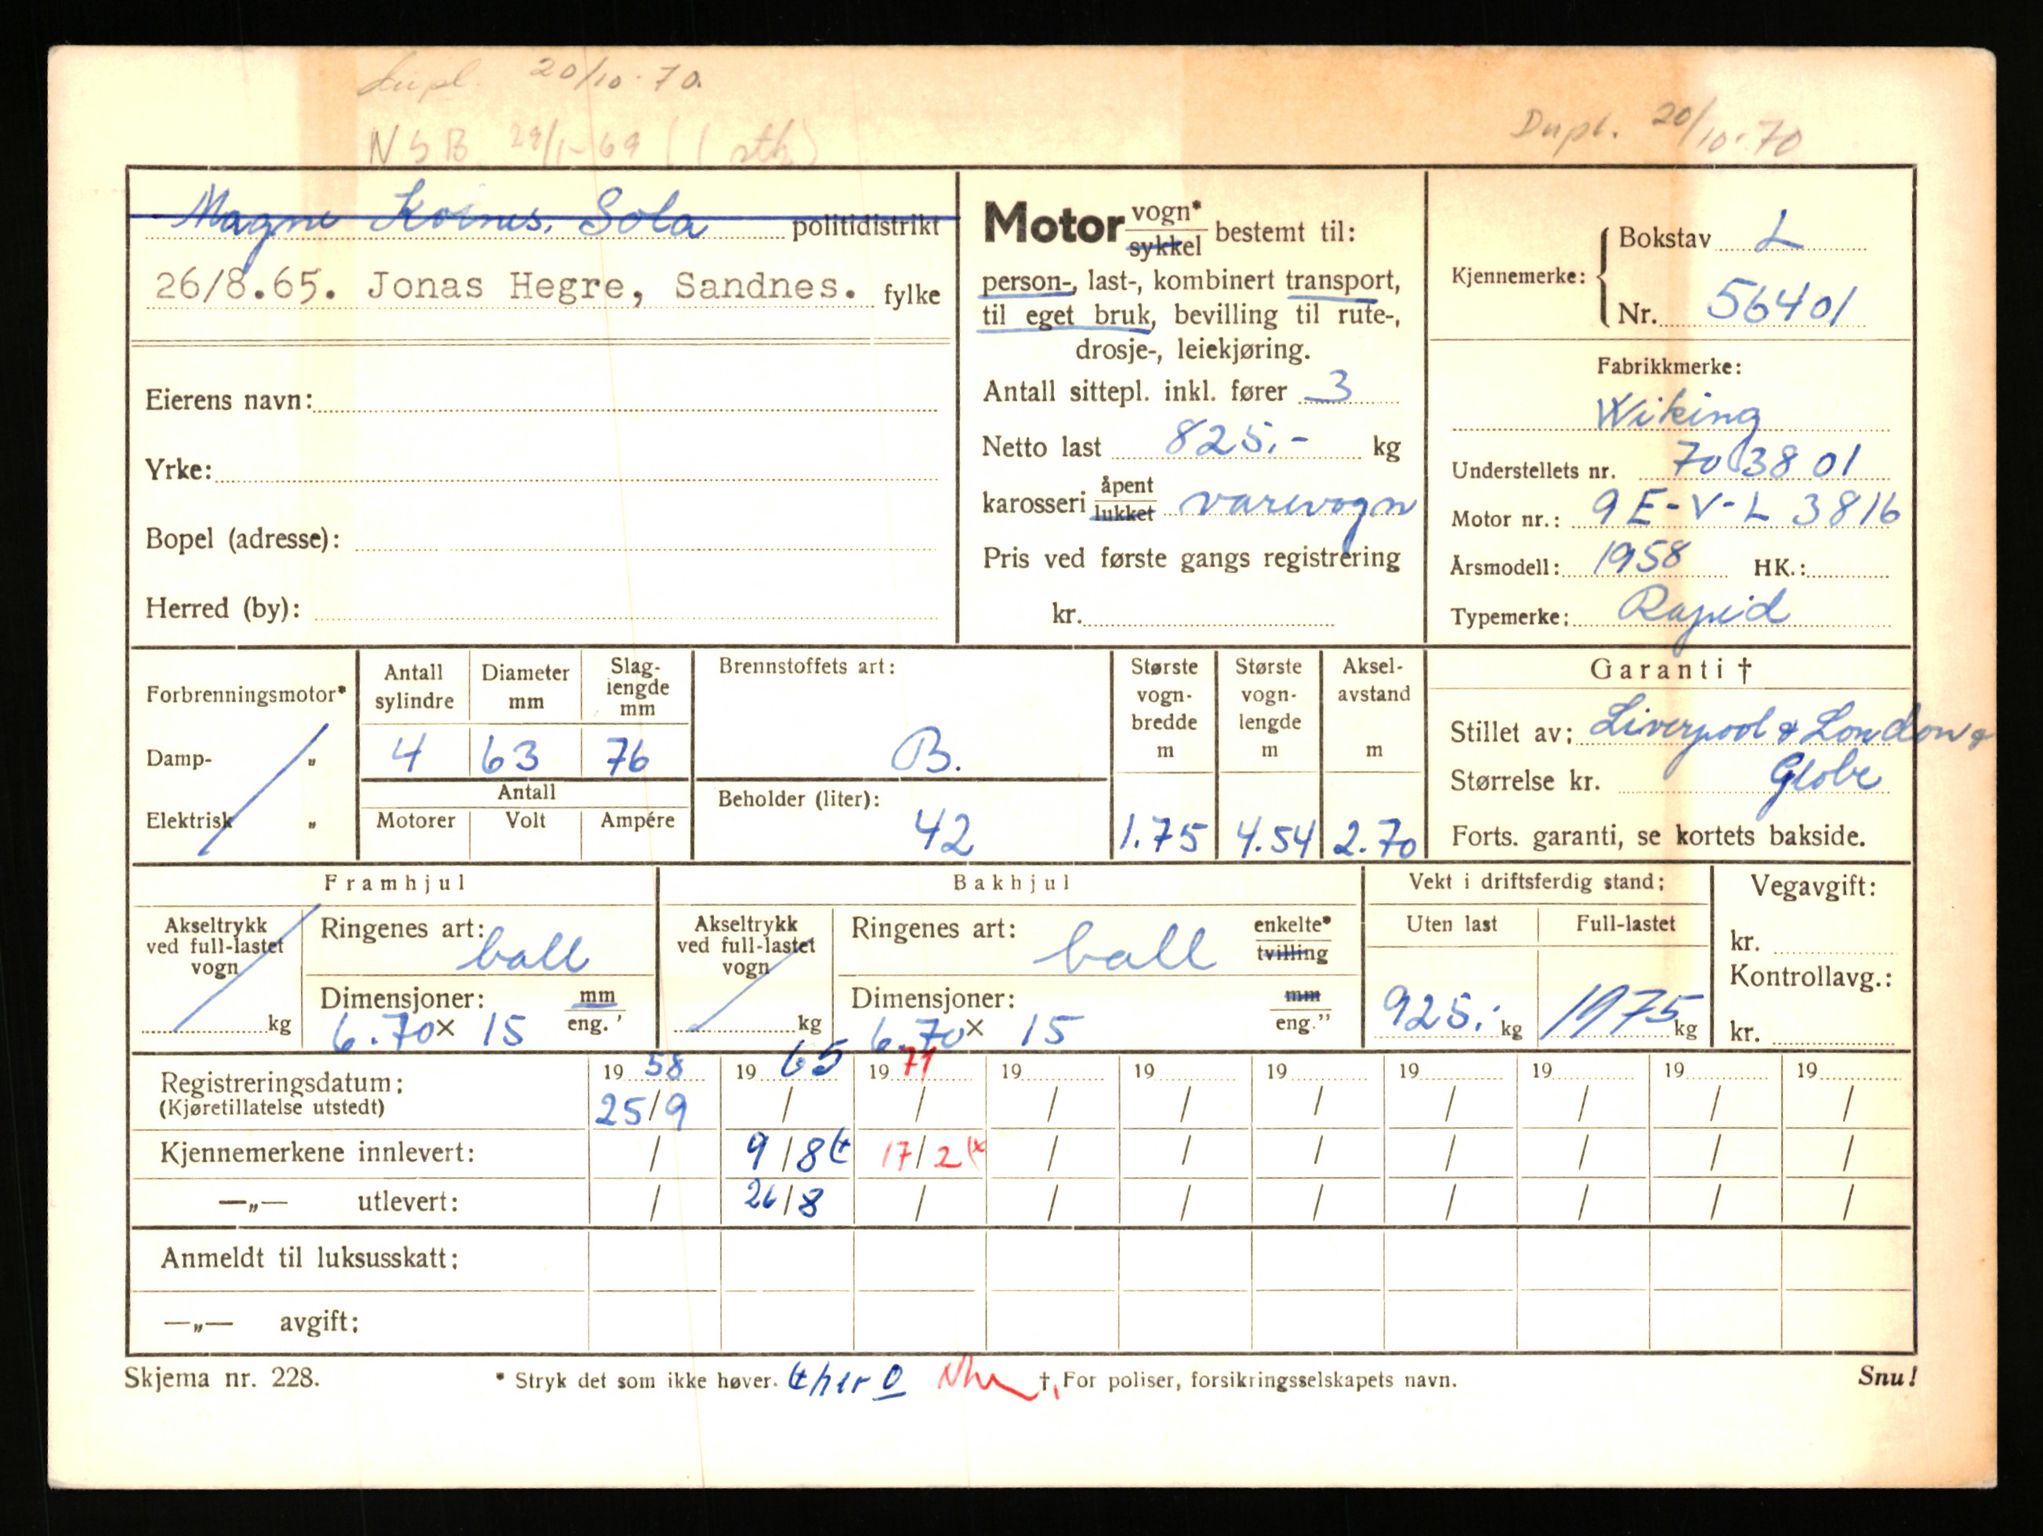 Dupl. 20/10-70
NSB 29/1-69 (1 stk)
Dupl. 20/10-70
Magne Sola politidistrikt
26/8.65. Jonas Hegre, Sandnes. fylke
Eierens navn:
Yrke:
Bopel (adresse):
Herred (by):
Motor vogn* sykkel bestemt til:
person-, last-, kombinert transport,
til eget bruk, bevilling til rute-,
drosje-, leiekjøring.
Antall sittepl. inkl. fører 3
Netto last 825.- kg
karosseri åpent lukket varevogn
Pris ved første gangs registrering
kr.
Kjennemerke: Bokstav L
Nr. 56401
Fabrikkmerke:
Wiking
Understellets nr. 703801
Motor nr.: 9E-V-L 3816
Årsmodell: 1958 HK.:
Typemerke: Rapid
Forbrenningsmotor*
Damp- „
Elektrisk „
Antall sylindre Diameter mm Slag-lengde mm
4 63 76
Antall
Motorer Volt Ampére
Brennstoffets art:
B.
Beholder (liter):
42
Største vogn-bredde m
1.75
Største vogn-lengde m
4.54
Aksel-avstand m
2.70
Garanti †
Stillet av: Liverpool & London &
Størrelse kr. Globe
Forts. garanti, se kortets bakside.
Framhjul
Akseltrykk
ved full-lastet
vogn
kg
Ringenes art: ball
Dimensjoner: mm
6.70 x 15 eng. '
Bakhjul
Akseltrykk
ved full-lastet
vogn
kg
Ringenes art: ball enkelte* tvilling
Dimensjoner: mm
6.70 x 15 eng."
Vekt i driftsferdig stand:
Uten last Full-lastet
925.- kg 1975 kg
Vegavgift:
kr.
Kontrollavg.:
kr.
Registreringsdatum: 19 58 19 65 19 71 19 19 19 19 19 19 19
(Kjøretillatelse utstedt) 25/9 / / / / / / / / /
Kjennemerkene innlevert: / 9/8 17/2 / / / / / / /
—„— utlevert: / 26/8 / / / / / / / /
Anmeldt til luksusskatt:
—„— avgift:
Skjema nr. 228. * Stryk det som ikke høver. †, For poliser, forsikringsselskapets navn. Snu!